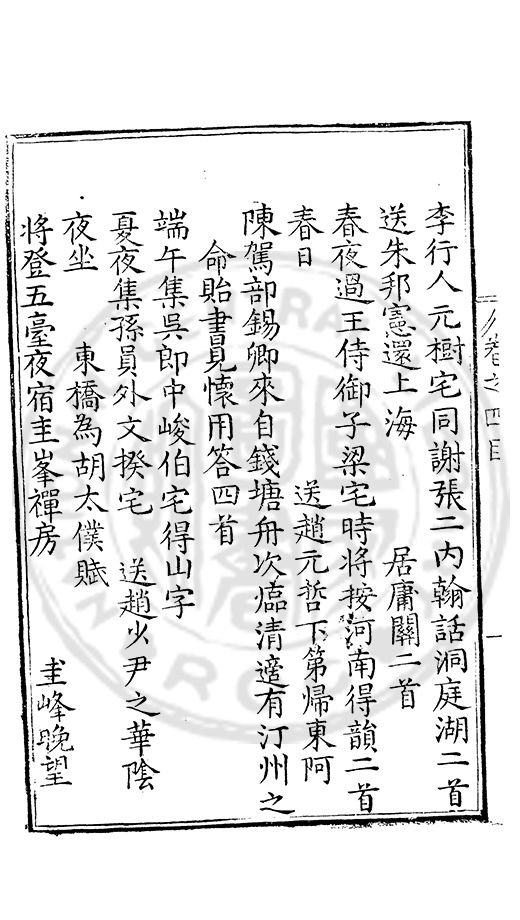 卷之四目
李行人元樹宅同謝張二內翰話洞庭湖二首
送朱邦憲還上海　居庸關二首
春夜過王侍御子梁宅時將按河南得韻二首
春日　送趙元哲下第歸東阿
陳駕部錫卿來自錢塘舟次臨清適有汀州之
命貽書見懷用答四首
端午集吳郎中峻伯宅得山字
夏夜集孫員外文揆宅　送趙少尹之華陰
夜坐　東橋為胡太僕賦
將登五臺夜宿圭峯禪房　圭峰晚望